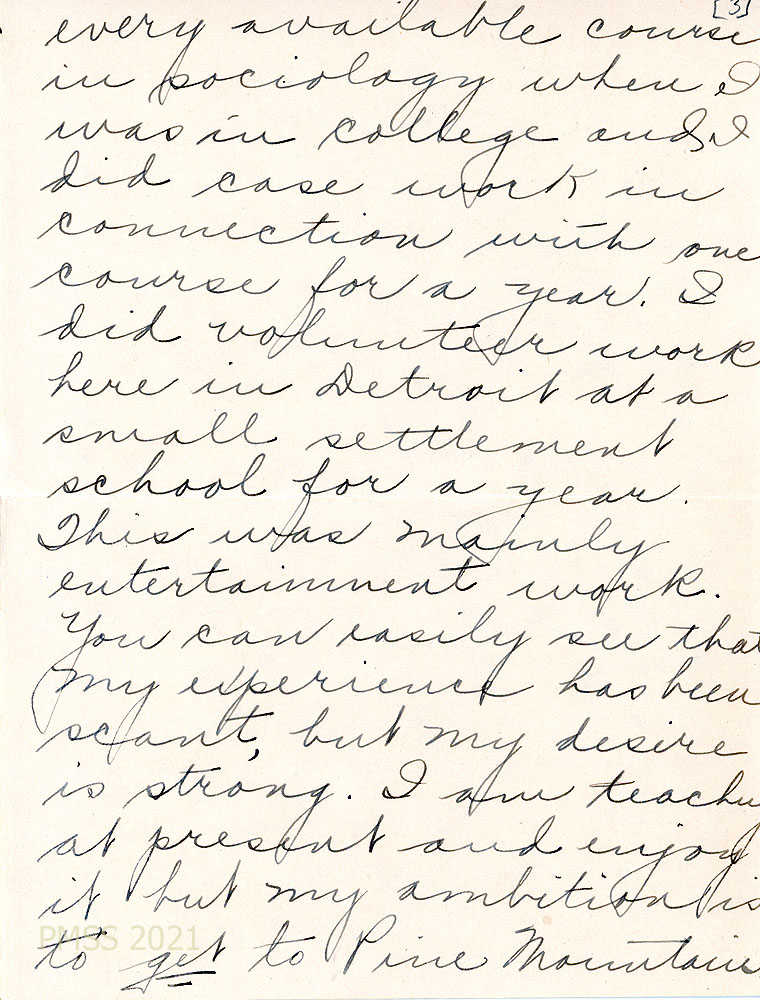 [3]
every available course
in sociology when I
was in college and I
did case work in
connection with one
course for a year. I
did volunteer work
here in Detroit at a
small settlement
school for a year.
This was mainly
entertainment work.
You can easily see that
my experience has been
scant, but my desire
is strong. I am teachin
at present and enjoy
it but my ambition is
to get to Pine Mountain
PMSS 2021